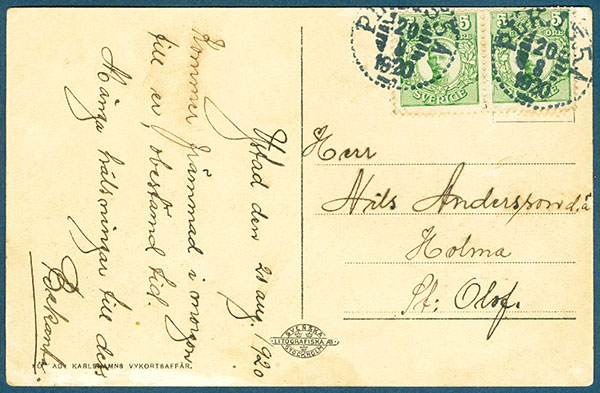 Ystad den 21 aug. 1920
Kommer främmad i morgon
till er, obestämd tid.
Många hälsningar till dess
Bekant.
5 5
SVERIGE
5 ÖRE
SVERIGE
20
8
1920
20
8
1920
Herr
Nils Andersson d.ä
Holma
St: Olof.
SVENSKA
LITOGRAFISKA AB.
STOCKHOLM
KARLSHAMNS VYKORTSAFFÄR.